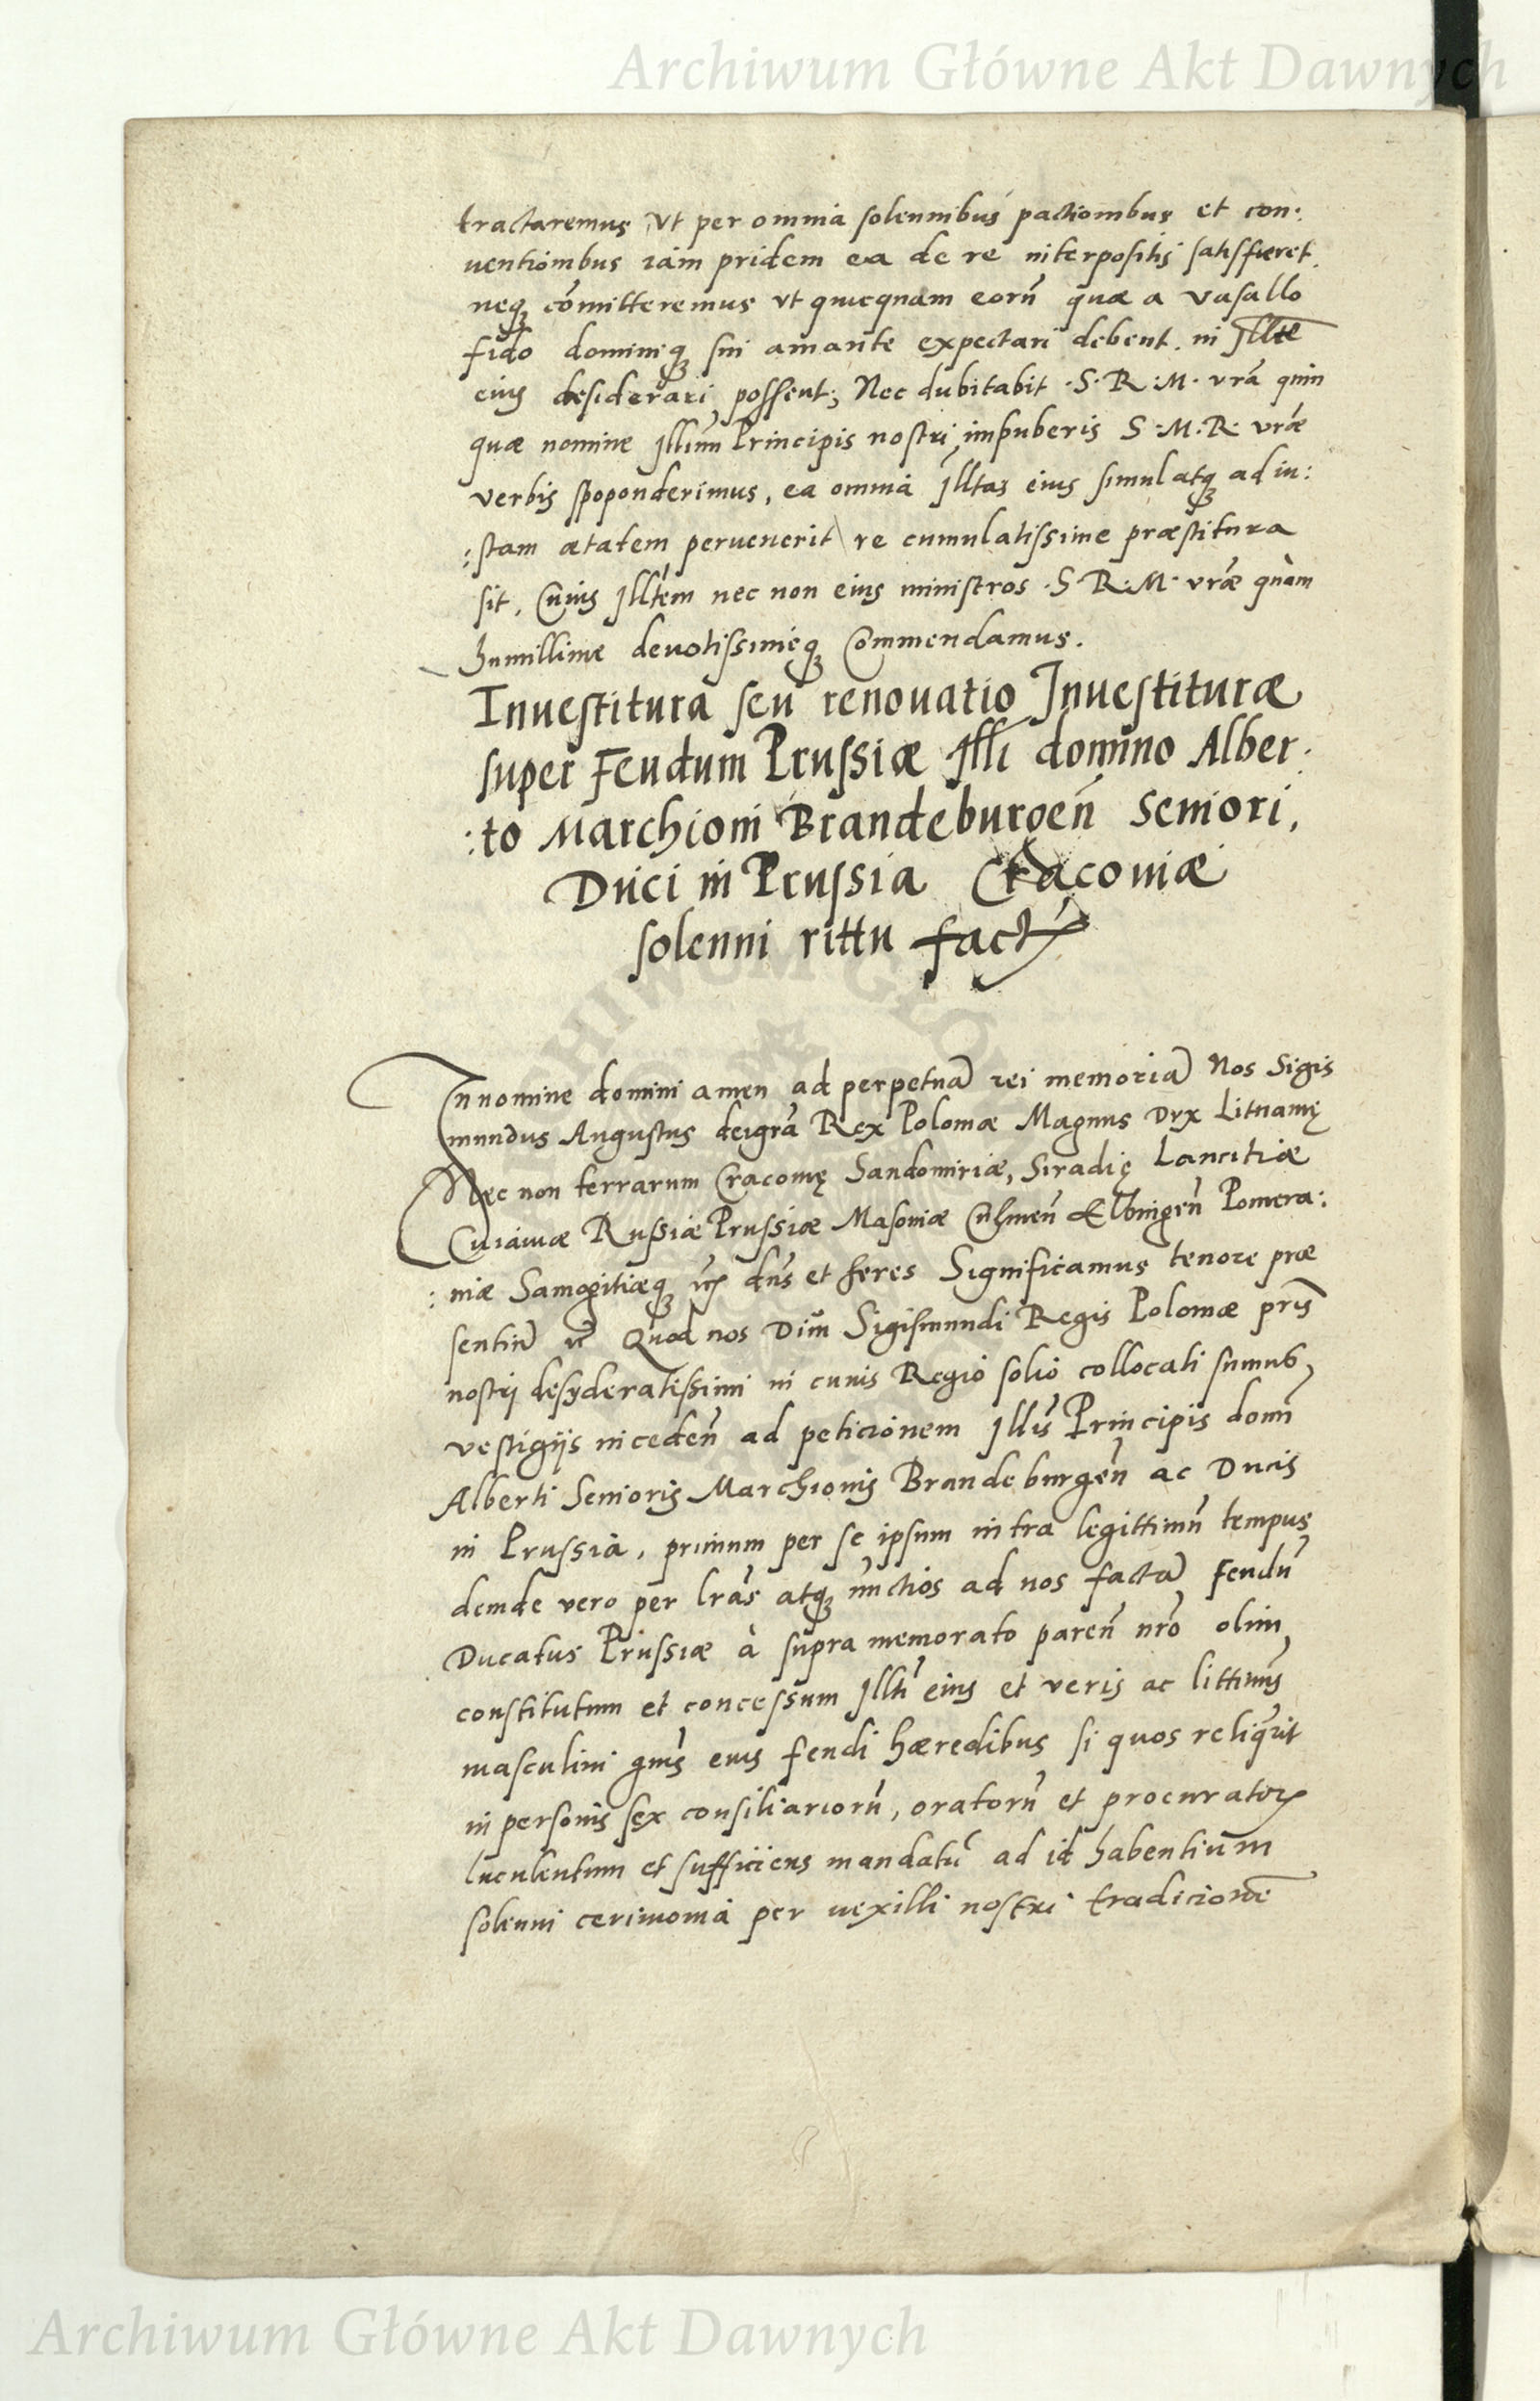 Archiwum Główne Akt Dawnych
tractaremus, vt per omnia solennibus pactionibus et con:
uentionibus iam pridem ea de re interpositis satisfieret.
neq₃ com̄itteremus vt quicquam eorū quæ a vasallo
fido dominiq₃ sui amante expectari debent. in Illt̄e
eius desiderari possent; Nec dubitabit S. R. M. vrā quin
quæ nomine Illmi Principis nostri impuberis S. M. R. vræ
verbis spoponderimus, ea omnia Illtas eius simul atq₃ ad iu:
:stam ætatem peruenerit re cumulatissime præstitura
sit, Cuius Illtem nec non eius ministros S. R. M. vræ quàm
humillime deuotissimeq₃ Commendamus.
Inuestitura seu renouatio Inuestituræ
super Feudum Prussiæ Illi domino Alber:
:to Marchioni Brandeburgeñ Seniori,
Duci in Prussia Cracouiæ
solenni rittu fact
In nomine domini amen ad perpetuā rei memoriā Nos Sigis
mundus Augustus dei grā Rex Poloniæ Magnus Dux Lituanię
Nec non terrarum Cracouię Sandomiriæ, Siradię Lancitiæ
Cuiauiæ Russiæ Prussiæ Masouiæ Culmeñ Elbingeñ Pomera:
:niæ Samogitiæq₃ dn̄s et heres Significamus tenore præ
sentiū Quod nos Diui Sigismundi Regis Poloniæ pris̄
nostri desyderatissimi in cuius Regio solio collocati sumus,
vestigijs inceden̄ ad peticionem Illis Principis domī
Alberti Senioris Marchionis Brandeburgeñ ac Ducis
in Prussia, primum per se ipsum intra legittimū tempus
deinde vero per lrās atq₃ nūctios ad nos factā Feudū
Ducatus Prussiæ à supra memorato pareñ nrō olim
constitutum et concessum Illti eius et veris ac littimis
masculini gn̄is eius feudi hæredibus si quos reliqrit
in personis sex consiliariorū, oratorū et procurator
luculentum et sufficiens mandatū ad id habentium
solenni cerimonia per uexilli nostri tradicionē
Archiwum Główne Akt Dawnych